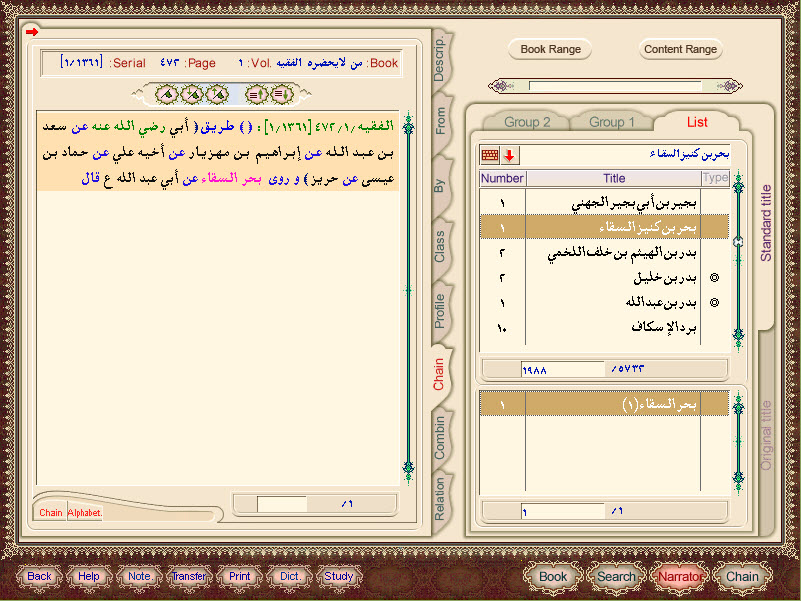 Book Range
Content Range
Book: من لايحضره الفقيه Vol.: ١ Page: ٤٧٢ Serial: [١/١٣٦١]
الفقيه ٤٧٢/١/ [١/١٣٦١] : ( ) طريق( أبي رضي الله عنه عن سعد
بن عبد الله عن إبراهيم بن مهزيار عن أخيه علي عن حماد بن
عيسى عن حريز ) و روى بحر السقاء عن أبي عبد الله ع قال
Chain
Alphabet.
/١
Descrip.
From
By
Class
Profile
Chain
Combin
Relation
Group 2
Group 1
List
بحر بن كنيز السقاء
Number
Title
Type
بجير بن أبي بجير الجهني
١
بحر بن كنيز السقاء
١
بدر بن الهيثم بن خلف اللخمي
٢
بدر بن خليل
٢
بدر بن عبد الله
١
برد الإسكاف
١٠
١٩٨٨
/٥٧٣٢
بحر السقاء(١)
١
١
/١
Standard title
Original title
Back
Help
Note.
Transfer
Print
Dict.
Study
Book
Search
Narrator
Chain